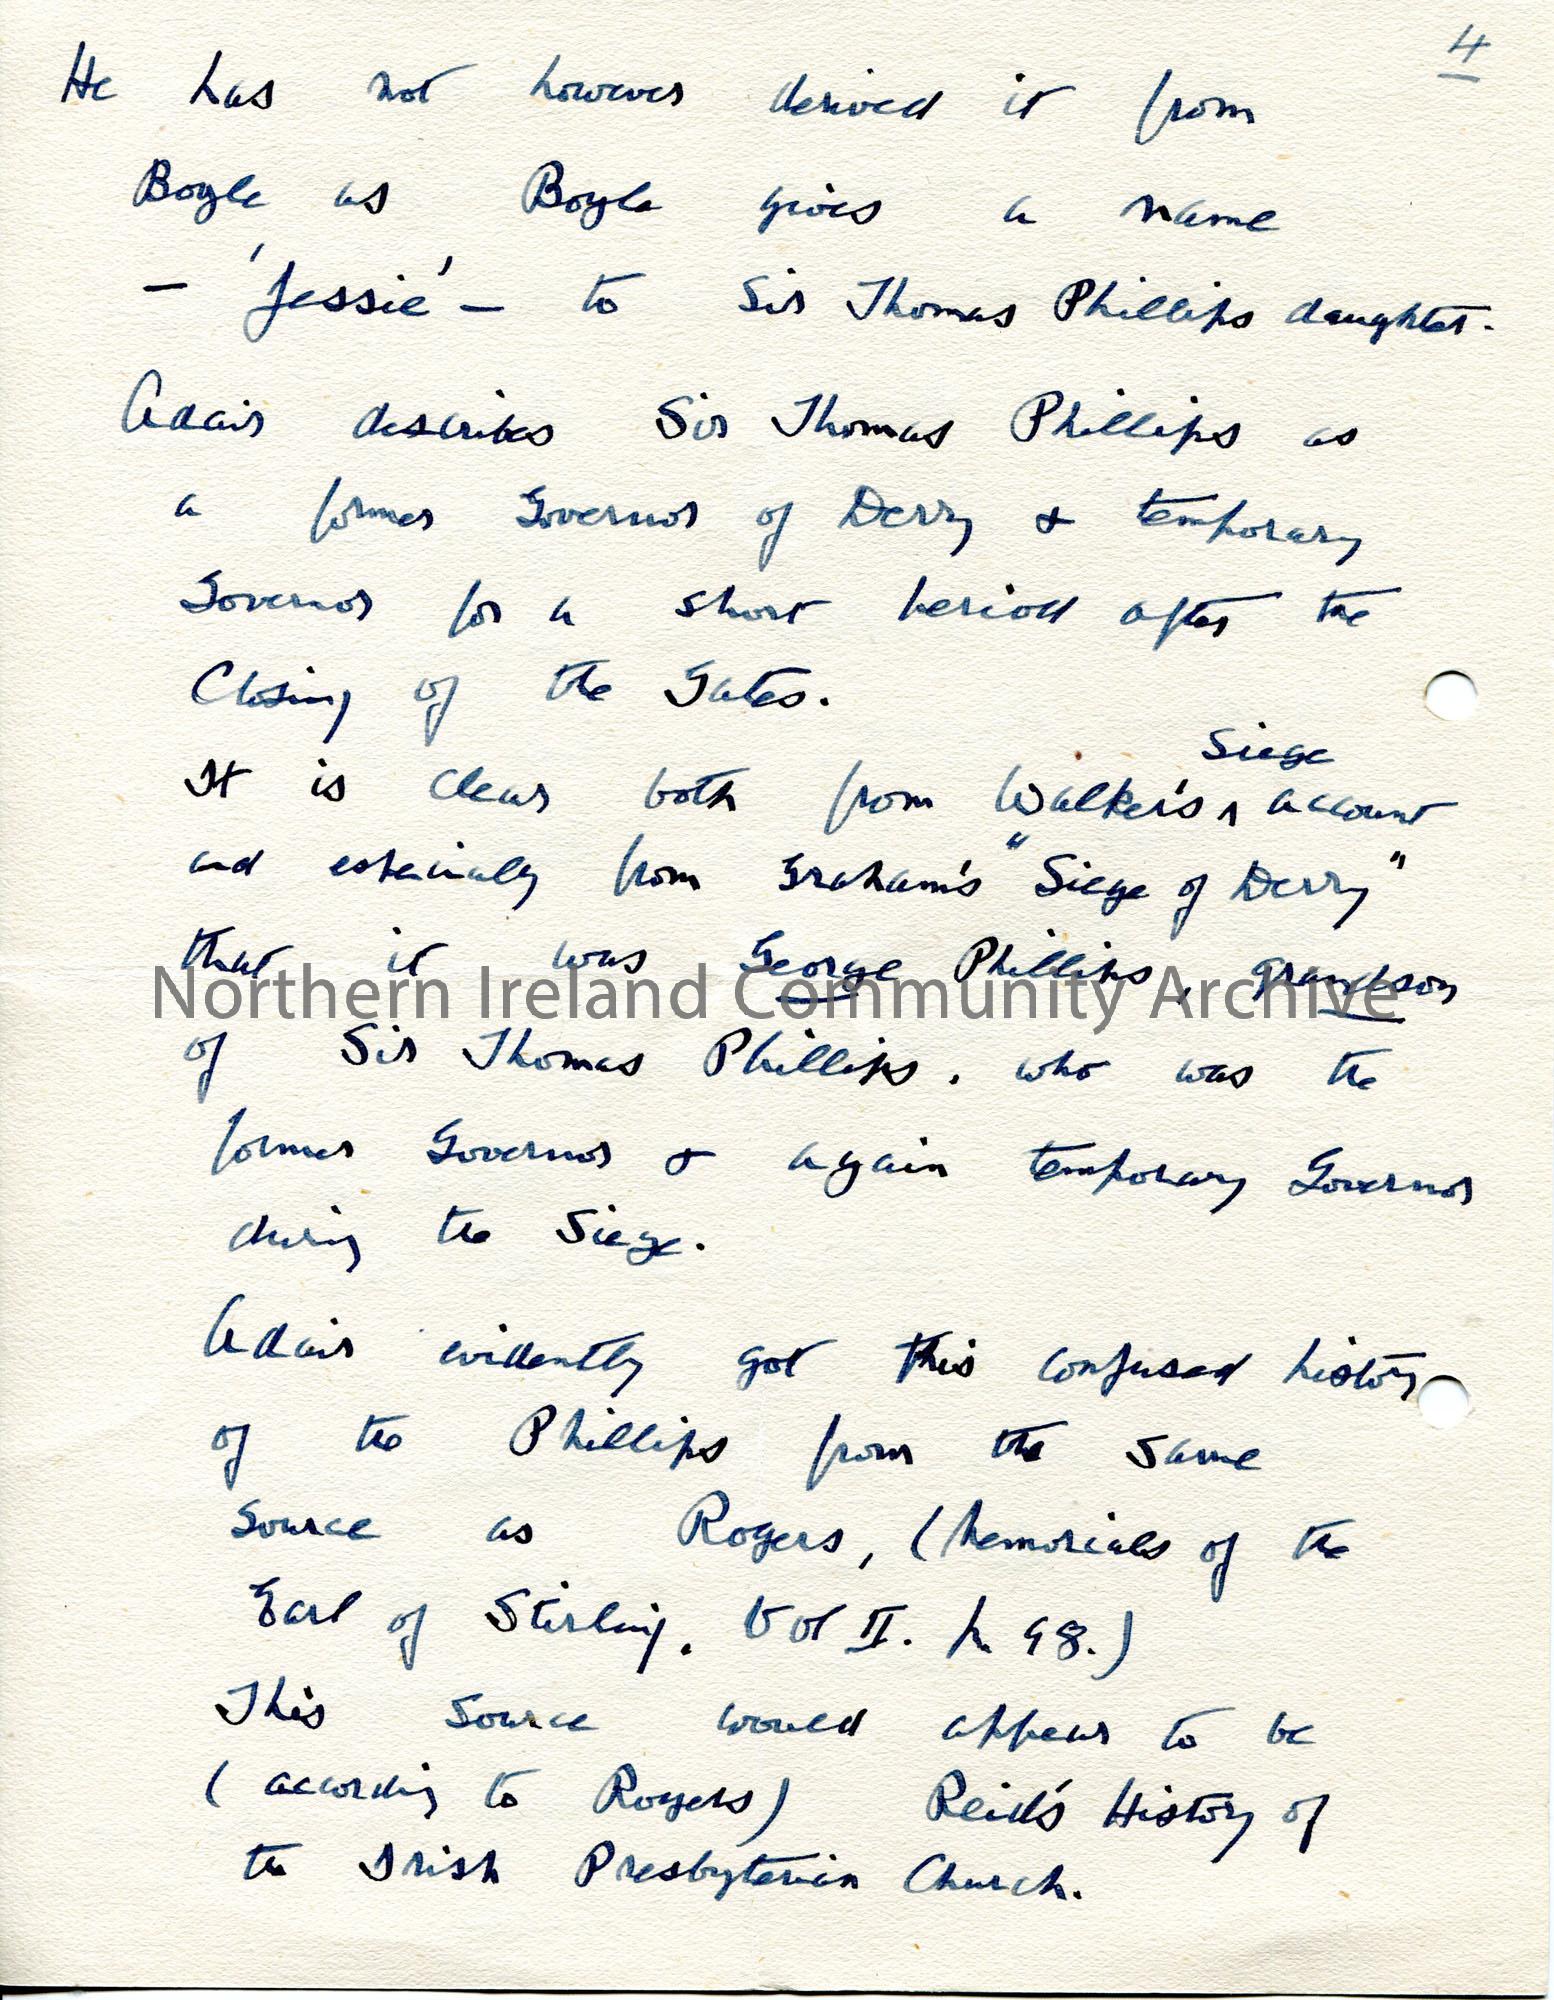 4
He has not however derived it from
Boyle as Boyle gives a name
– 'Jessie' – to Sir Thomas Phillips daughter.
Adair describes Sir Thomas Phillips as
a former Governor of Derry & temporary
Governor for a short period after the
Closing of the Gates.
Siege
It is clear both from Walker's ∧ account
and especially from Graham's "Siege of Derry"
that it was George Phillips, grandson
Northern Ireland Community Archive
of Sir Thomas Phillips, who was the
former Governor & again temporary Governor
during the Siege.
Adair evidently got this confused history
of the Phillips from the same
source as Rogers, (Memorials of the
Earl of Stirling, Vol II. p. 98.)
This source would appear to be
(according to Rogers) Reid's History of
the Irish Presbyterian Church.